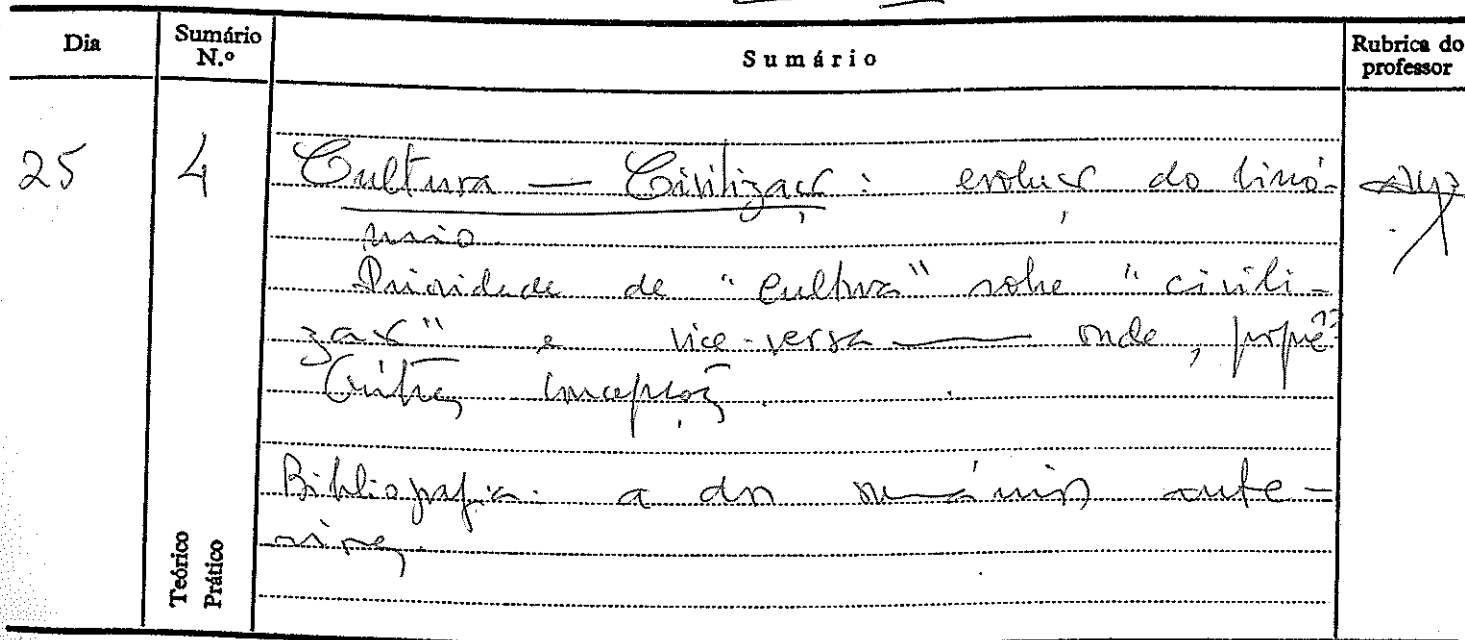 Dia
Sumário N.º
Sumário
Rubrica do professor
25
4
Cultura — Civilização: evolução do binó-
mio.
Prioridade de "cultura" sobre "civili-
zação" e vice-versa — onde, porquê?
concepções.
Bibliografia: a dos sumários ante-
riores.
Teórico
Prático